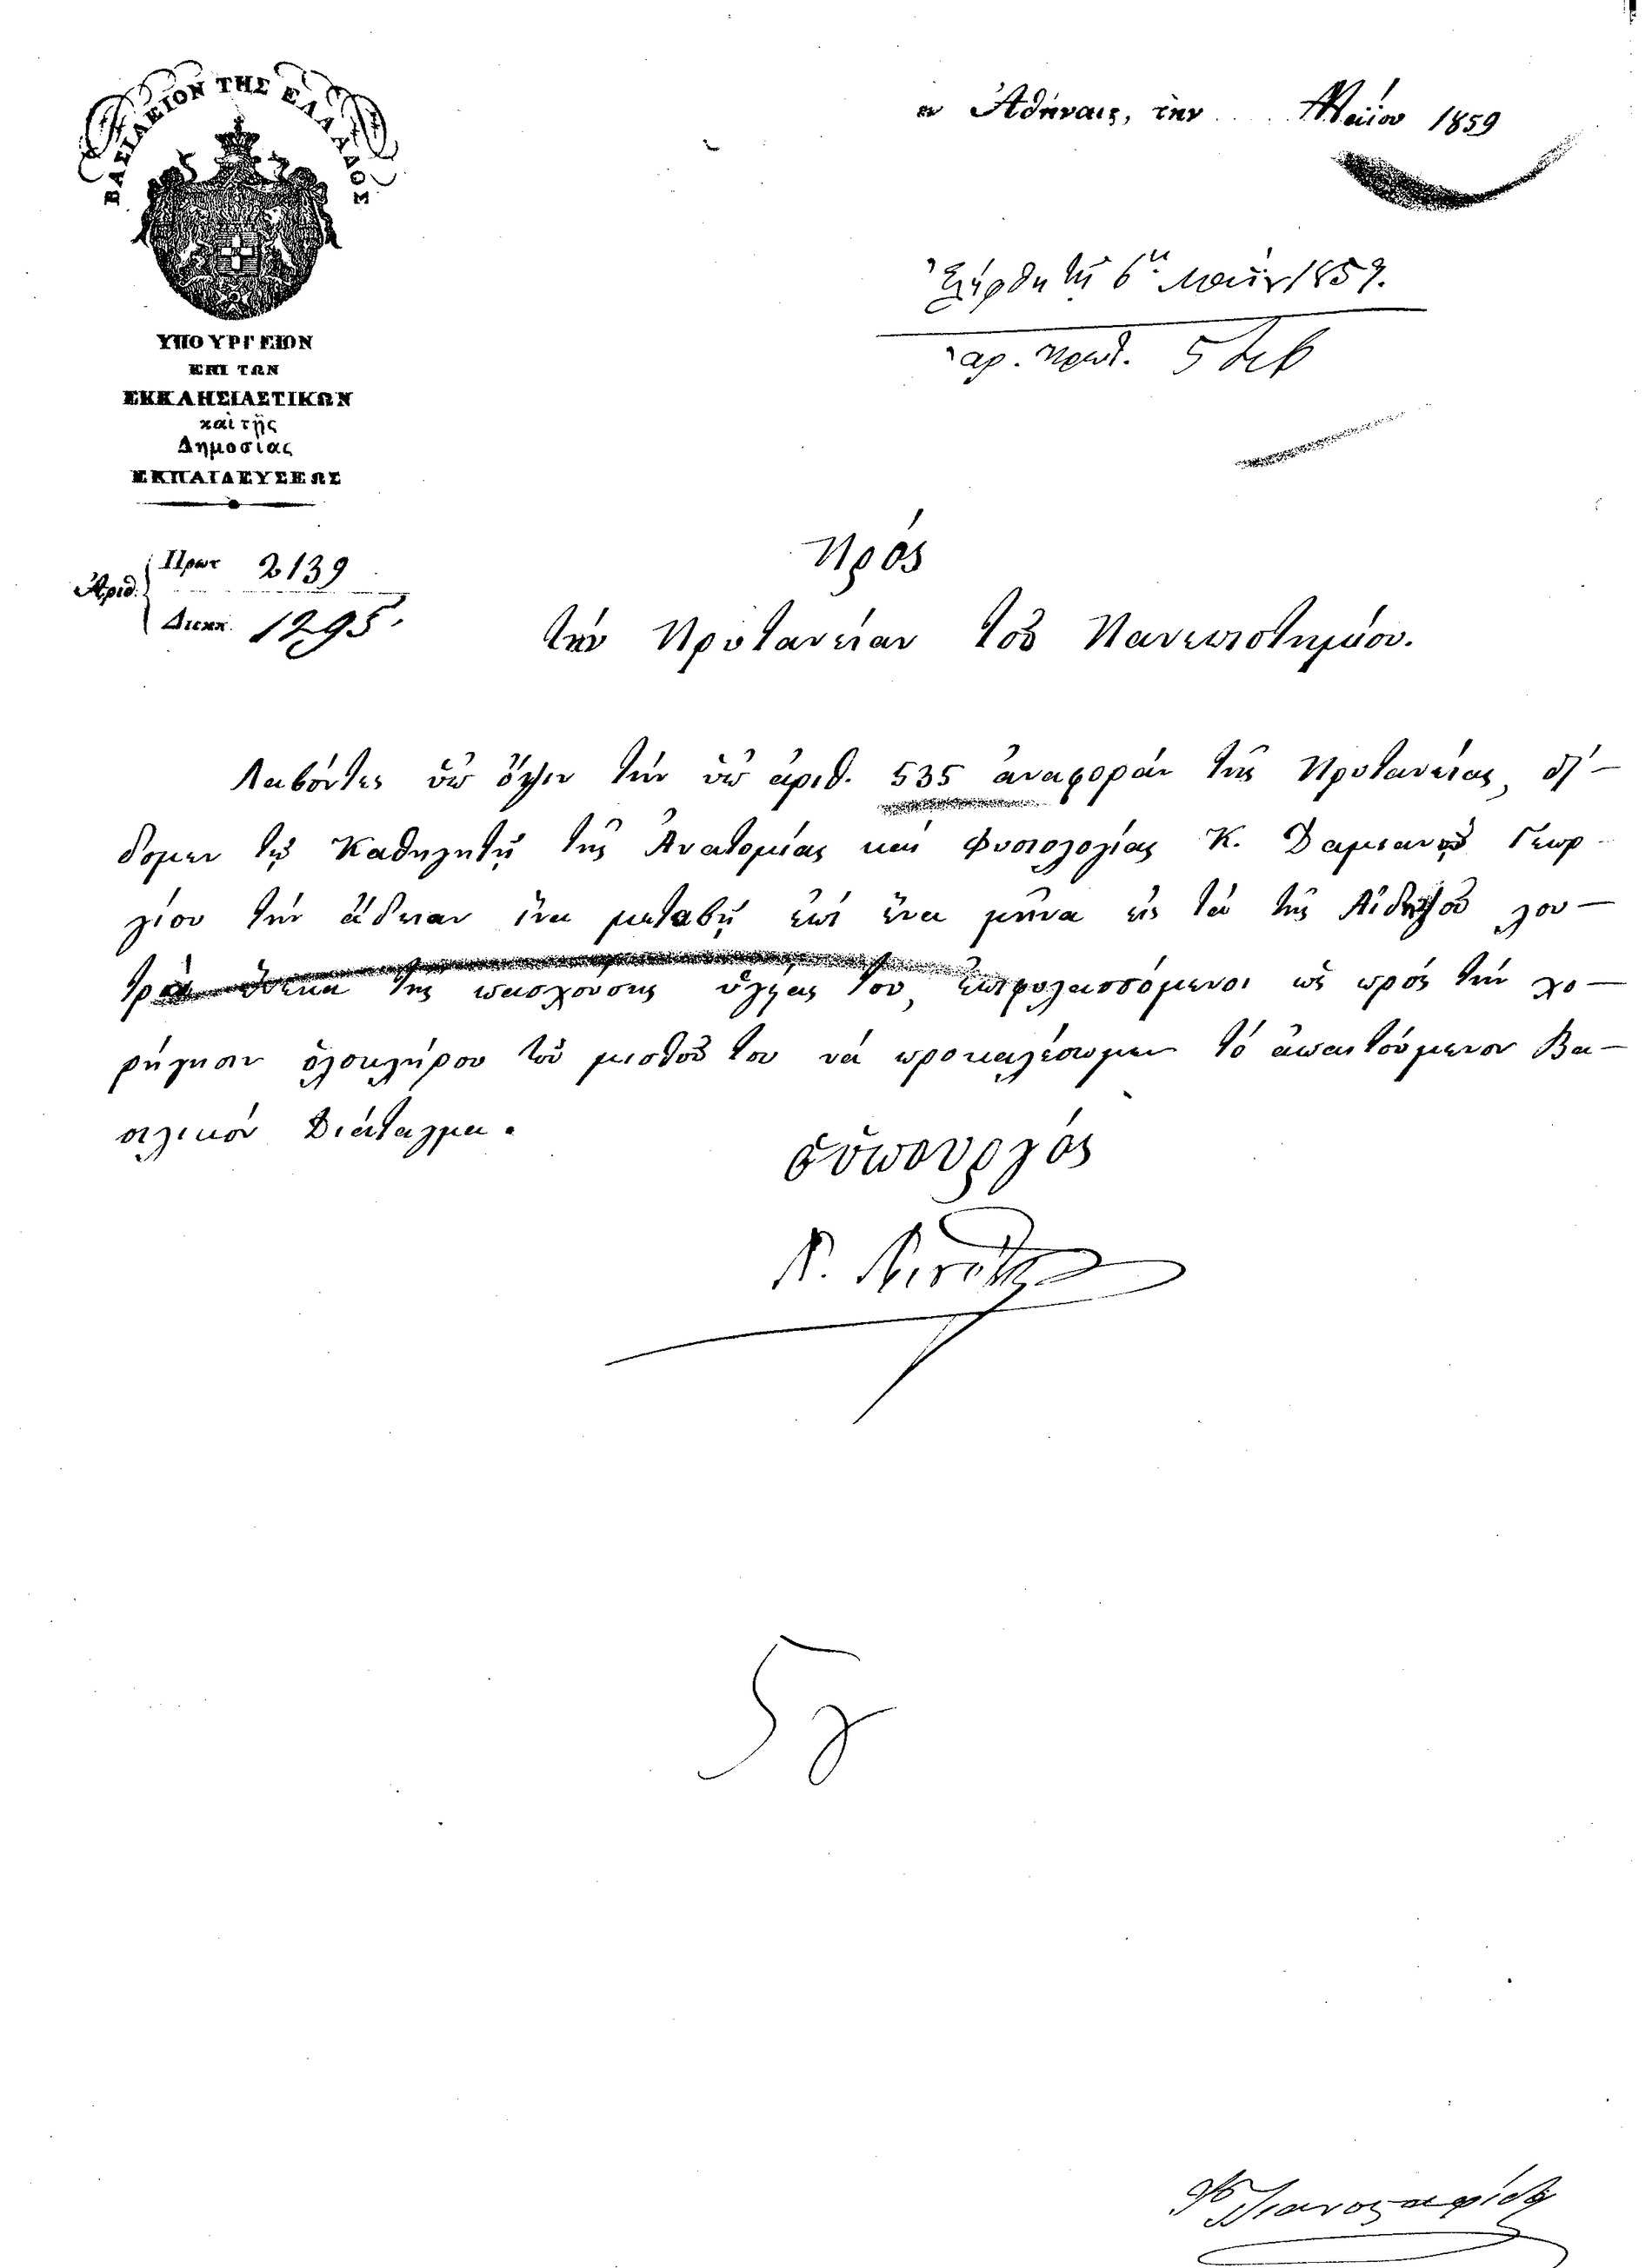 ΒΑΣΙΛΕΙΟΝ ΤΗΣ ΕΛΛΑΔΟΣ
ΥΠΟΥΡΓΕΙΟΝ
ΕΠΙ ΤΩΝ
ΕΚΚΛΗΣΙΑΣΤΙΚΩΝ
καὶ τῆς
Δημοσίας
ΕΚΠΑΙΔΕΥΣΕΩΣ
Ἀριθ. Πρωτ 2139
Διεκπ. 1295
ἐν Ἀθήναις, τὴν Μαΐου 1859
Ἐλήφθη τῇ 6ῃ Μαΐου 1859.
ἀρ. πρωτ.
Πρὸς
τὴν Πρυτανείαν τοῦ Πανεπιστημίου.
Λαβόντες ὑπ' ὄψιν τὴν ὑπ' ἀριθ. 535 ἀναφορὰν τῆς Πρυτανείας, δί-
δομεν τῷ Καθηγητῇ τῆς Ἀνατομίας καὶ Φυσιολογίας Κ. Δαμιανῷ Γεωρ-
γίου τὴν ἄδειαν ἵνα μεταβῇ ἐπὶ ἕνα μῆνα εἰς τὰ τῆς Αἰδηψοῦ λου-
τρὰ ἕνεκα τῆς πασχούσης ὑγείας του, ἐπιφυλασσόμενοι ὡς πρὸς τὴν χο-
ρήγησιν ὁλοκλήρου τοῦ μισθοῦ του νὰ προκαλέσωμεν τὸ ἀπαιτούμενον Βα-
σιλικὸν Διάταγμα.
Ὁ ὑπουργὸς
5 γ